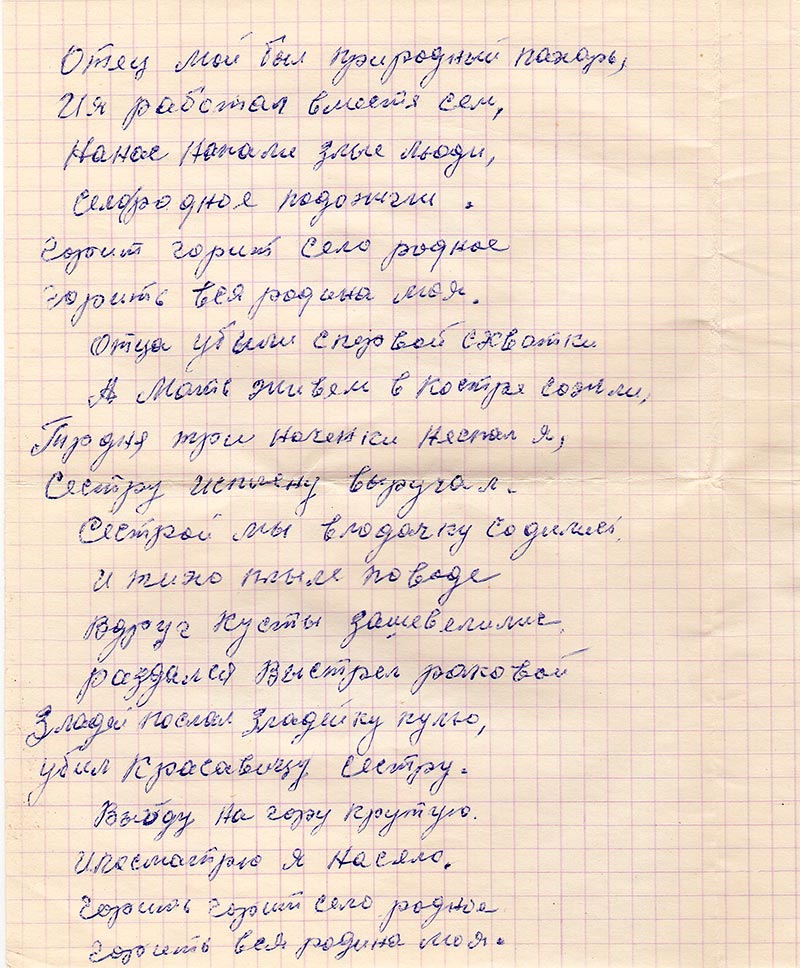 Отец мой был природный пахарь,
И я работал вместя сем,
Нанас напали злые люди,
Селородное подожгли.
Горит горит село родное
Горить вся родина моя.
Отца убили спервой схватки
А Мать живем в костре сожгли,
Три дня три ноченки неспал я,
Сестру исплену выручал.
Сестрой мы влодачку содились.
и тихо плыли поводе
Вдруг кусты зашевелились.
раздался Выстрел роковой
Зладей послал Зладейку пулю,
убил Красавицу Сестру.
Выйду на гору крутую.
Ипосматрю я насяло.
Горить горит село родное
Горить вся родина моя.